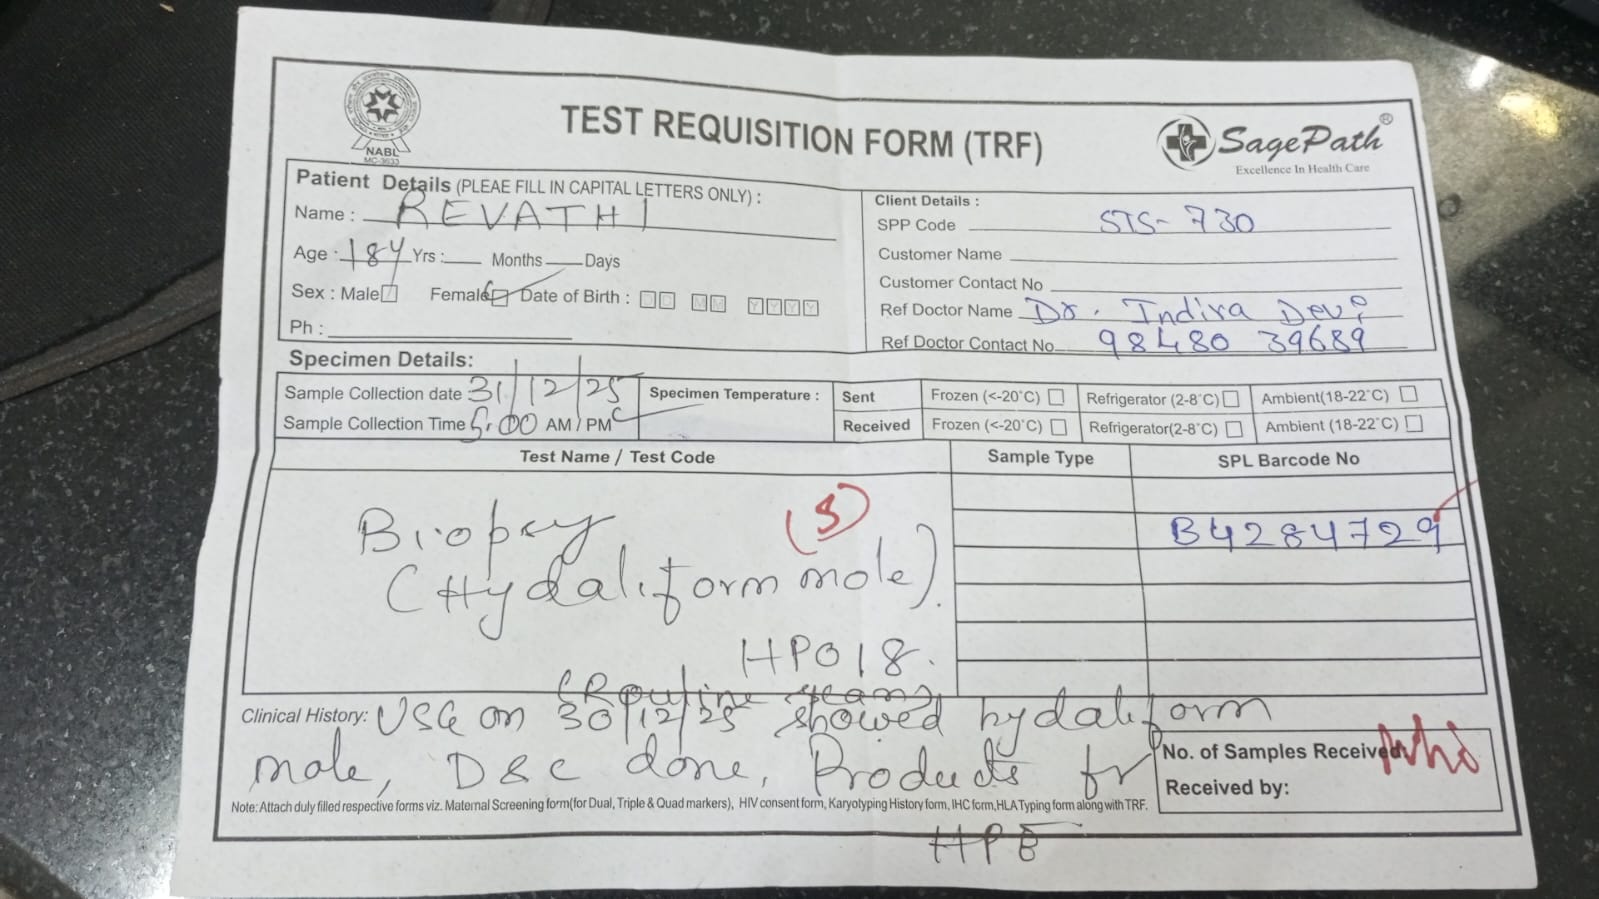 NABL
MC-3633
TEST REQUISITION FORM (TRF)
SagePath®
Excellence In Health Care
Patient Details (PLEAE FILL IN CAPITAL LETTERS ONLY) :
Name : REVATHI
Age : 18Y Yrs : Months Days
Sex : Male Female Date of Birth : DD MM YYYY
Ph :
Client Details :
SPP Code STS-730
Customer Name
Customer Contact No
Ref Doctor Name Dr. Indira Devi
Ref Doctor Contact No 98480 39689
Specimen Details:
Sample Collection date 31/12/25
Sample Collection Time 5.00 AM / PM
Specimen Temperature :
Sent Frozen (<-20°C) Refrigerator (2-8°C) Ambient(18-22°C)
Received Frozen (<-20°C) Refrigerator(2-8°C) Ambient (18-22°C)
Test Name / Test Code Sample Type SPL Barcode No
Biopsy (S)
B4284729
(Hydaliform mole).
HP018.
(Routine
Clinical History: USG on 30/12/25 showed hydaliform
mole, D&C done, Products for
HPE
No. of Samples Received
Received by:
Note: Attach duly filled respective forms viz. Maternal Screening form(for Dual, Triple & Quad markers), HIV consent form, Karyotyping History form, IHC form,HLA Typing form along with TRF.